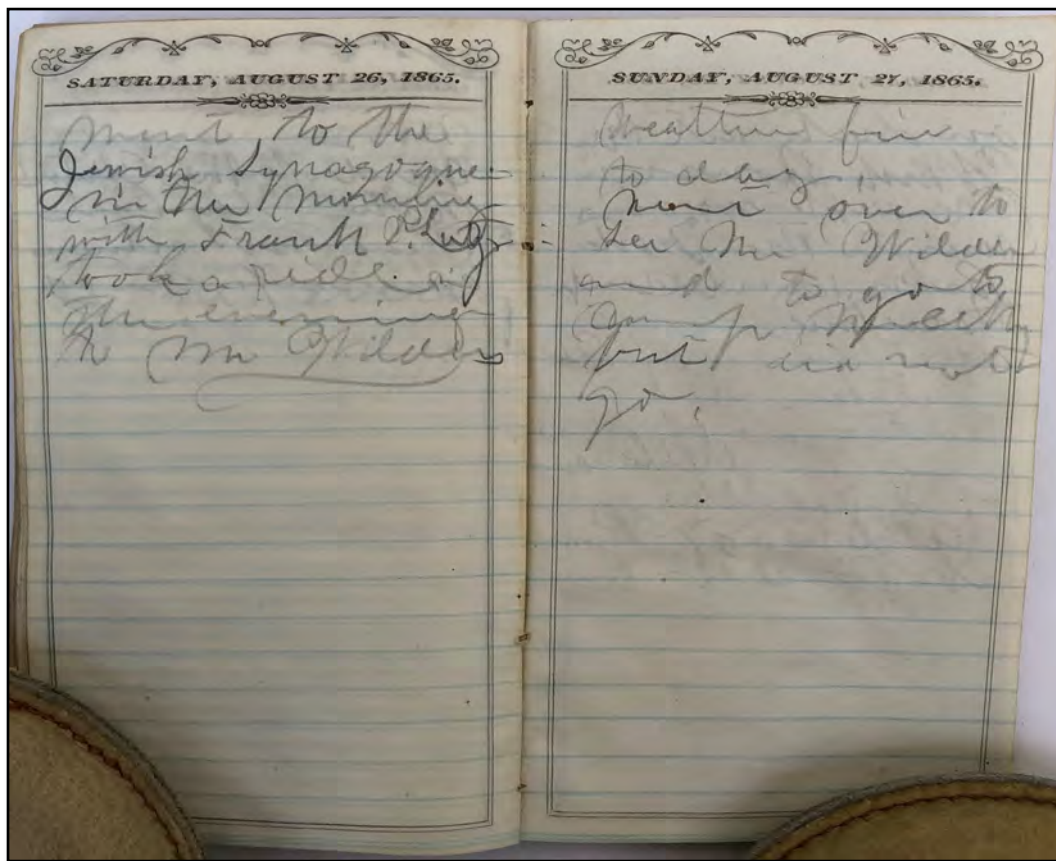 SATURDAY, AUGUST 26, 1865.
Went to the
Jewish Synagogue
in the morning
with Frank P.
took a ride in
the evening
to Mr Wilders
SUNDAY, AUGUST 27, 1865.
Weather fine
to day.
Went over to
see Mr Wilder
and to go to
Camp
but did not
go.